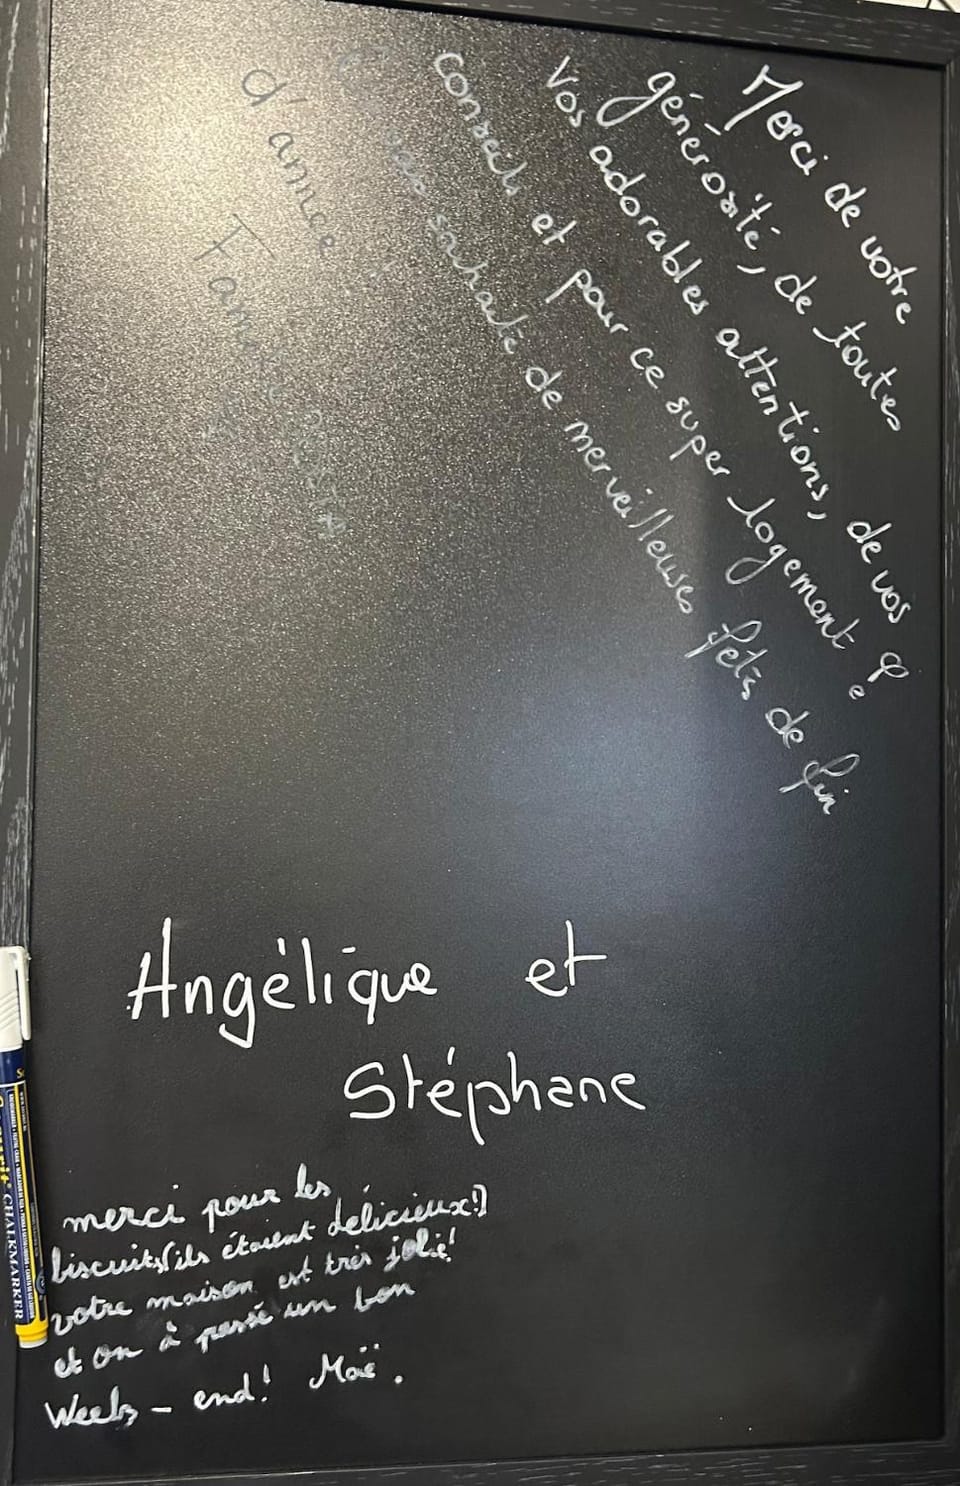 Merci de votre
générosité, de toutes
vos adorables attentions, de vos
conseils et pour ce super logement
souhaite de merveilleuses fêtes de fin
d'année
Famille
Angélique et
Stéphane
merci pour les
biscuits (ils étaient délicieux!)
votre maison est très jolie!
et on à passé un bon
Week-end! Maë.
CHALKMARKER